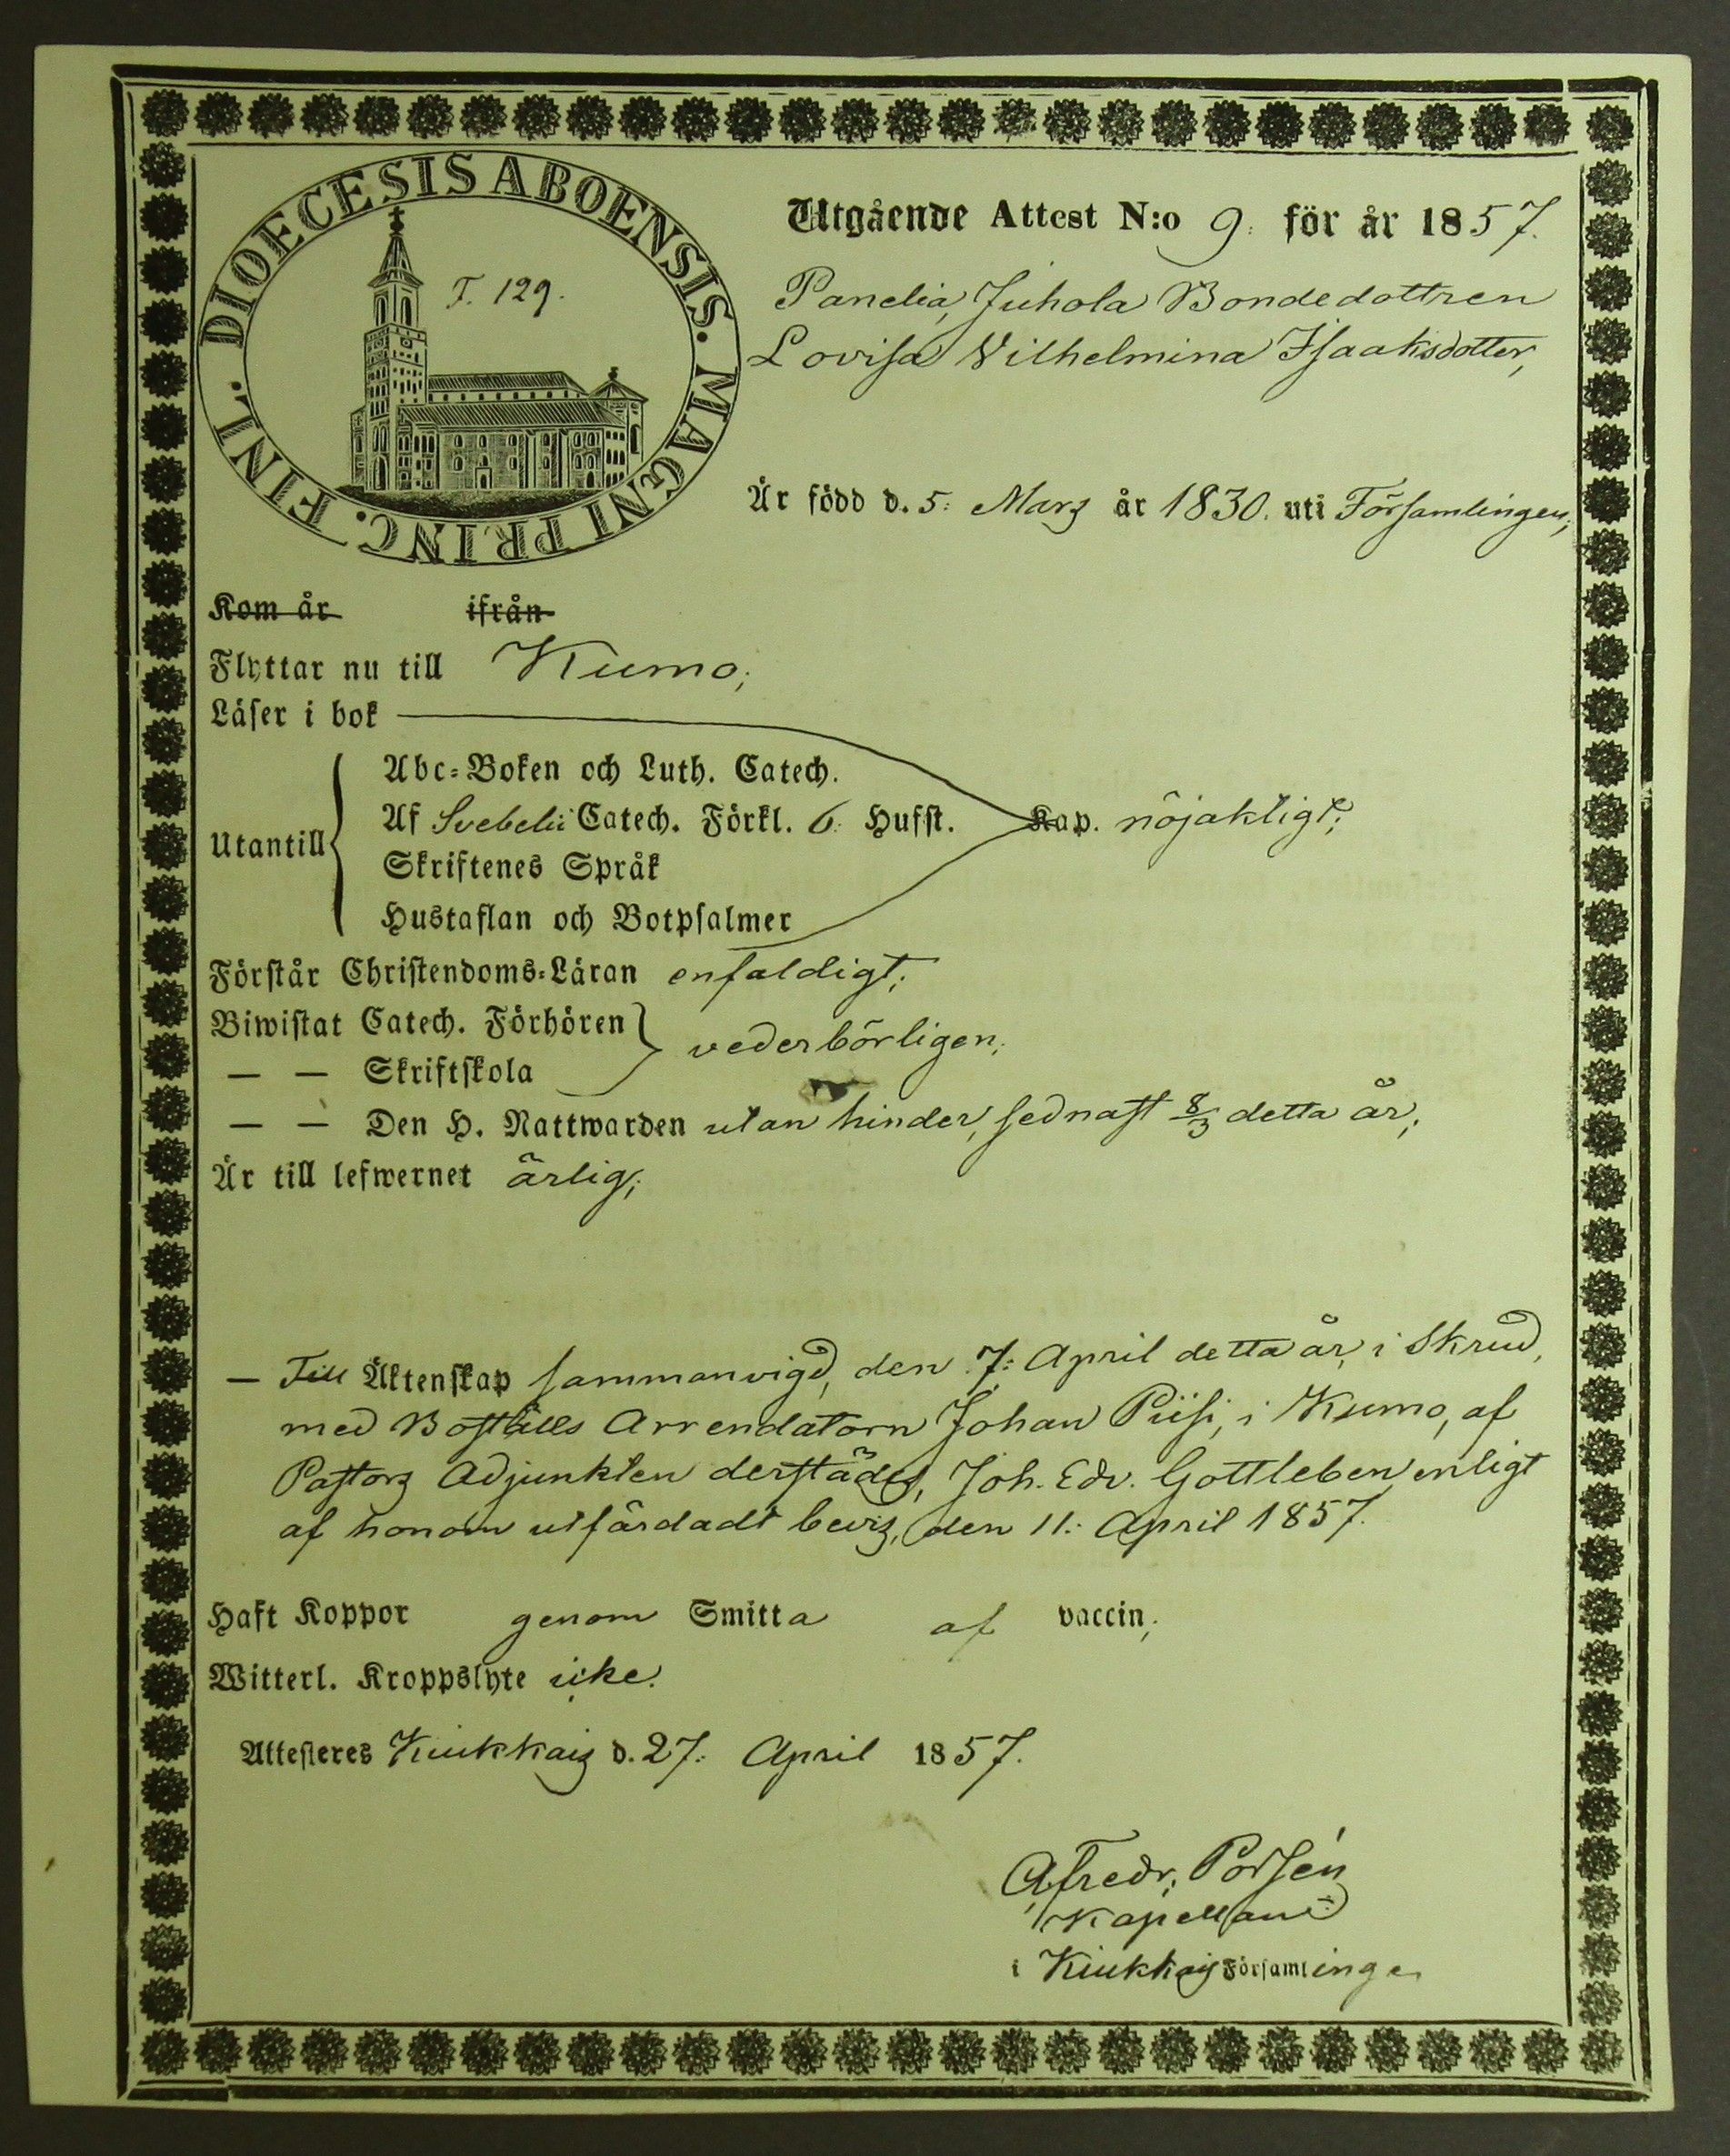 DIOECESIS ABOENSIS. MAGNI PRINC. FINL.
T. 129.
Utgående Attest N:o 9: för år 1857.
Panelia, Juhola Bondedottren
Lovisa Vilhelmina Isaaksdotter,
Är född d. 5: Mars år 1830. uti Församlingen;
Kom år ifrån
Flyttar nu till Kumo;
Läser i bok
Utantill
Abc-Boken och Luth. Catech.
Af Svebelii Catech. Förkl. 6: Hufst. Kap. nöjaktigt;
Skriftenes Språk
Hustaflan och Botpsalmer
Förstår Christendoms-Läran enfaldigt;
Biwistat Catech. Förhören
vederbörligen;
— — Skriftskola
— — Den H. Nattwarden utan hinder, sednast 8/3 detta år;
Är till lefwernet ärlig;
— Till Äktenskap sammanvigd, den 7: April detta år, i Skrud,
med Boställs Arrendatorn Johan Piisi, i Kumo, af
Pastors Adjunkten derstädes, Joh. Edv. Gottleben enligt
af honom utfärdadt bevis, den 11: April 1857.
Haft Koppor genom Smitta af vaccin;
Witterl. Kroppslyte icke.
Attesteres Kiukkais d. 27: April 1857.
A. Fredr. Porsén
Kapellan
i Kiukkais Församlinge